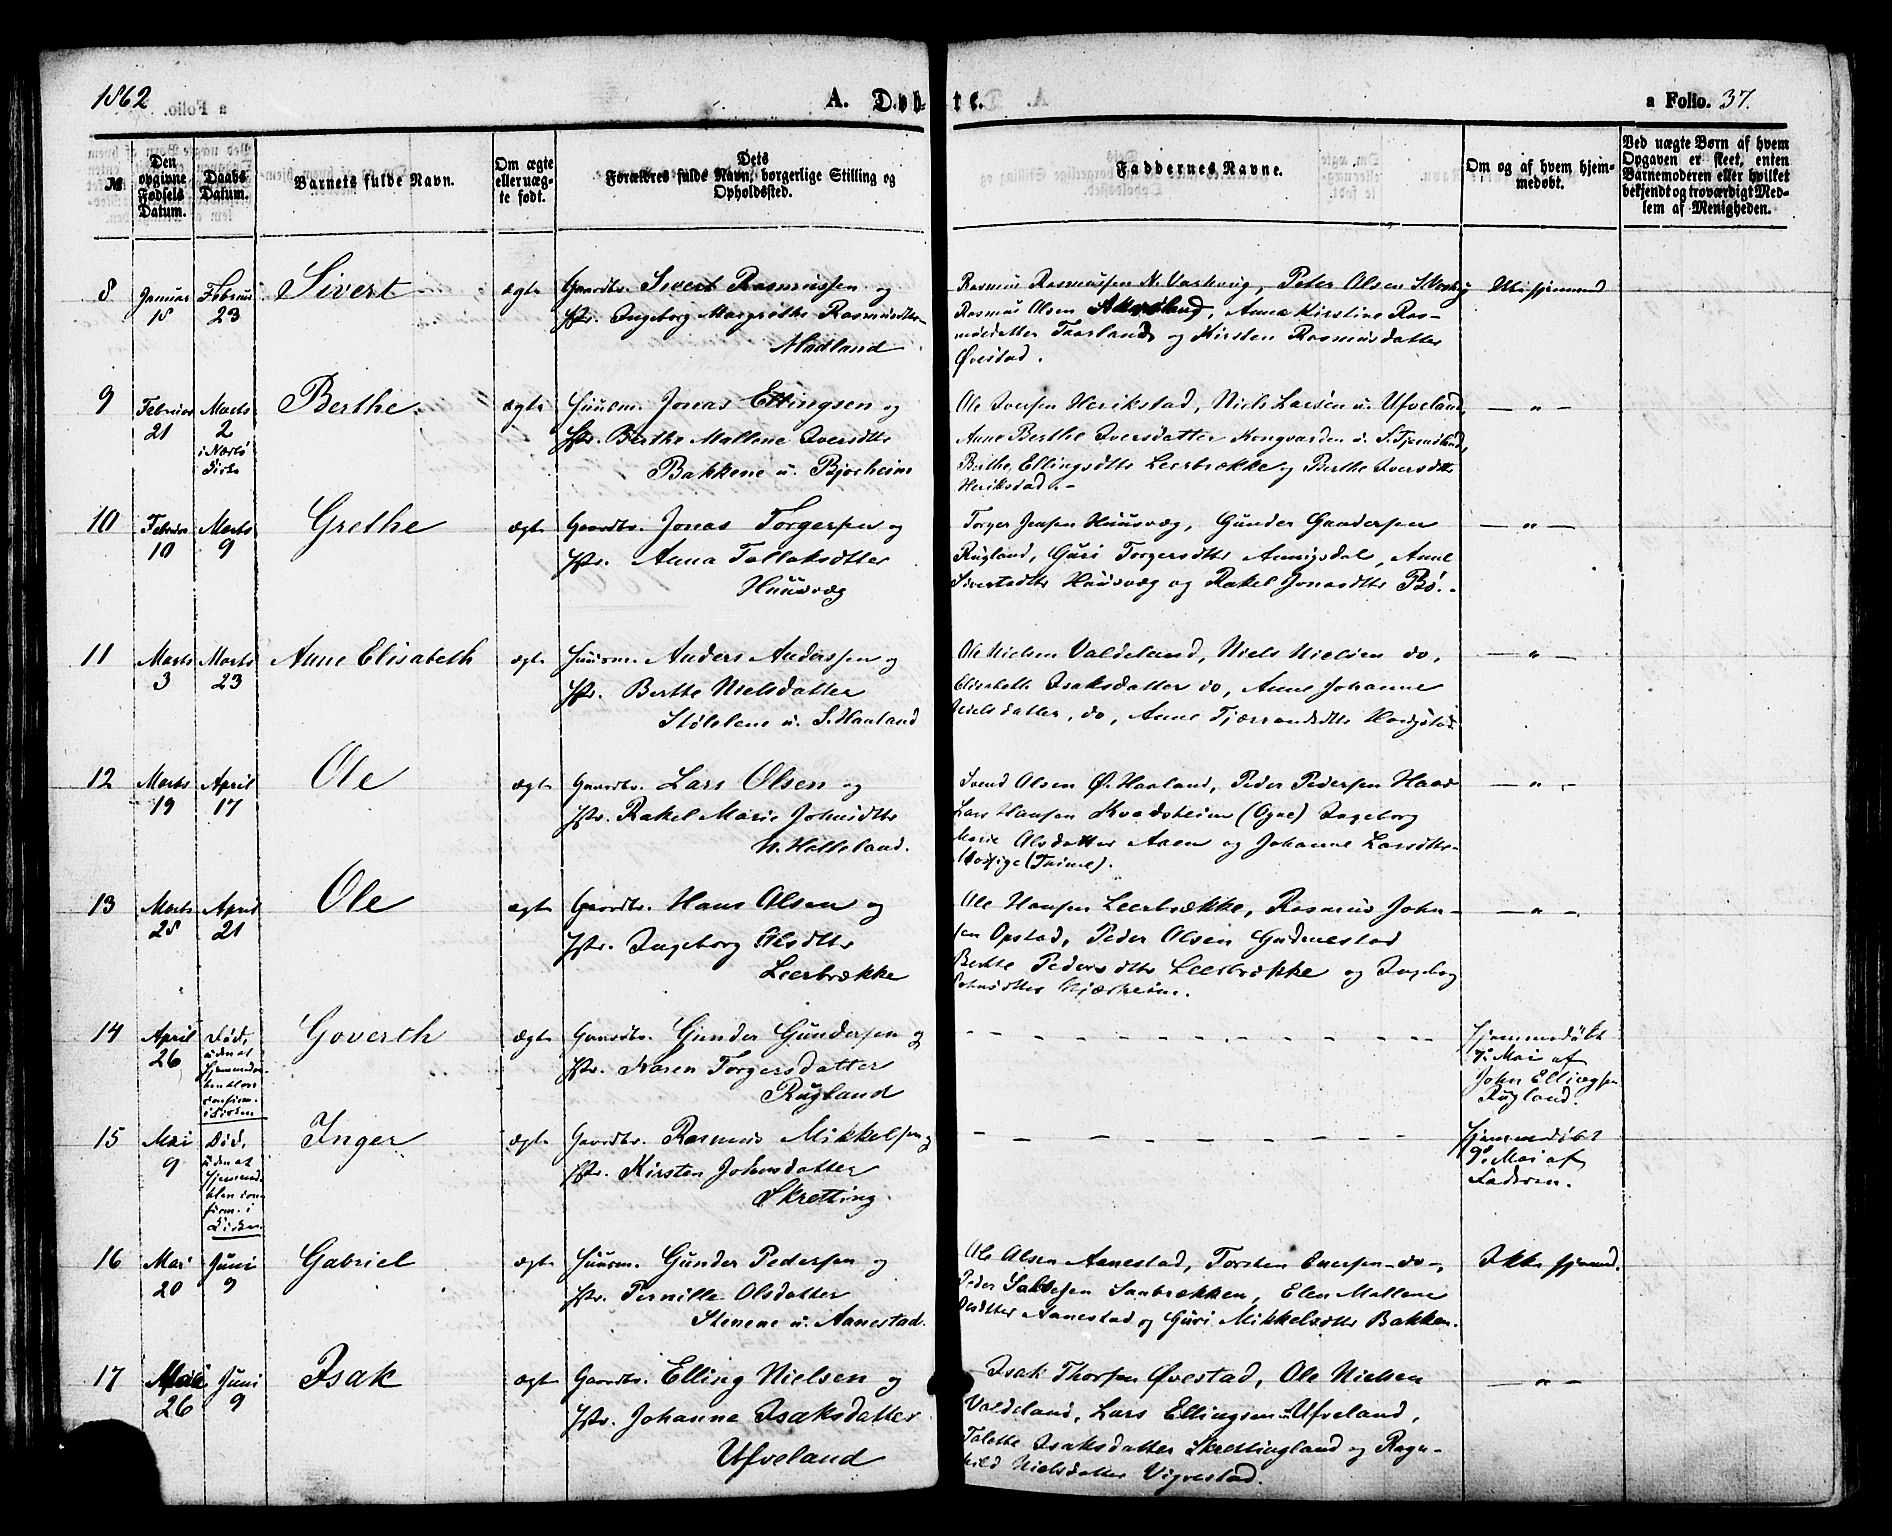 1862 A. Døbte. a Folio. 37.
№
Den opgivne Fødsels Datum.
Daabs Datum.
Barnets fulde Navn.
Om ægte eller uægte født.
Dets Forældres fulde Navn, borgerlige Stilling og Opholdssted.
Faddernes Navne.
Om og af hvem hjemmedøbt.
Ved uægte Børn af hvem Opgaven er skeet, enten Barnemoderen eller hvilket bekjendt og troværdigt Medlem af Menigheden.
8 Januar 18 Februar 23 Sivert ægte
Gaardbr. Sivert Rasmussen og
Hstr. Ingeborg Margrethe Rasmusdtr
Madland
Rasmus Rasmussen N. Varhoug, Peter Olsen S. Varhoug
Rasmus Olsen Aarsland, Anna Kirstine Ras-
musdatter Thorland og Kirsten Rasmusdatter
Øvestad.
9 Februar 21 Marts 2 i Nærbø Kirke Berthe ægte
Huusm. Jonas Ellingsen og
Hstr. Berthe Mallene Iversdtr
Bakkene u. Bjorheim
Ole Iversen Herikstad, Niels Larsen u. Ufveland,
Anne Berthe Iversdatter Kongvarden u. S. Tjemsland,
Berthe Ellingsdtr Leerbrække og Berthe Iversdtr
Herikstad. -
— " —
10 Februar 10 Marts 9 Grethe ægte
Gaardbr. Jonas Torgersen og
Hstr. Anna Tollaksdtter
Huusvæg
Torger Jensen Huusvæg, Gunder Gundersen
Rugland, Guri Torgersdtr Aunigsdal, Anne
Sivertsdtr Huusvæg og Rakel Jonasdtr Bø. -
— " —
11 Marts 3 Marts 23 Anne Elisabeth ægte
Huusm. Anders Andersen og
Hstr. Berthe Nielsdatter
Stølelene u. S. Haaland
Ole Nielsen Valdeland, Niels Nielsen do,
Elisabeth Isaksdatter do, Anne Johanne
Nielsdatter, do, Anne Tjærrandsdtr Haugstad
— " —
12 Marts 19 April 17 Ole ægte
Gaardbr. Lars Olsen og
Hstr. Rakel Marie Johnsdtr
N. Hølleland.
Svend Olsen Ø. Haaland, Peder Pedersen Haar
Lars Hansen Kvadsheim (Ogne) Ingeborg
Marie Olsdatter Aaen og Johanne Larsdtr
(Thime).
— " —
13 Marts 25 April 21 Ole ægte
Gaardbr. Hans Olsen og
Hstr. Ingeborg Olsdtr
Leerbrække
Ole Hansen Leerbrække, Rasmus John-
sen Opstad, Peder Olsen Gudmestad
Berthe Pedersdtr Leerbrække og Ingeborg
Johnsdtter Njærheim.
— " —
14 April 26 Død, uden at hjemmedaaben blev confirm. i Kirken Goverth ægte
Gaardbr. Gunder Gundersen og
Hstr. Karen Torgersdatter
Rugland
Hjemmedøbt
7. Mai af
John Ellingsen
Rugland.
15 Mai 9 Død, uden at hjemmed. blev confirm. i Kirken Inger ægte
Gaardbr. Rasmus Mikkelsen og
Hstr. Kirsten Johnsdatter
Skretting
Hjemmedøbt
9. Mai af
Faderen.
16 Mai 20 Juni 9 Gabriel ægte
Huusm. Gunder Pedersen og
Hstr. Pernille Olsdatter
Stenene u. Aanestad.
Ole Olsen Aanestad, Torsten Enersen - do -,
Peder Saklsen Saubrækken, Elen Mallene
Olsdtter Aanestad og Guri Mikkelsdtr Bakken.
Ikke hjemmd.
17 Mai 26 Juni 9 Isak ægte
Gaardbr. Elling Nielsen og
Hstr. Johanne Isaksdatter
Ufveland
Isak Thorsen Øvestad, Ole Nielsen
Valdeland, Lars Ellingsen Ufveland,
Talette Isaksdatter Skrettingland og Ragn-
hild Nielsdatter Vigrestad.
— " —